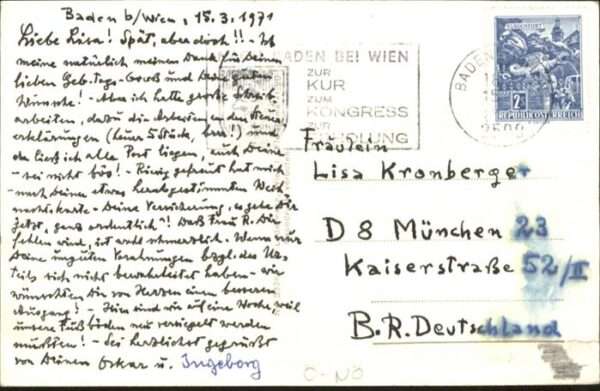 Baden b/Wien, 15.3.1971
Liebe Lisa! Spät, aber doch!! – Ist
meine natürlich meinen Dank für Deinen
lieben Geb.tags-Gruß und Deine guten
Wünsche! – Aber ich hatte große
arbeiten, dazu die Arbeiten an den Steuer
erklärungen (heuer 5 Stück, brr!) und
da ließ ich alle Post liegen, auch Deine
– sei nicht bös! – Riesig gefreut hat mich
– nach Deiner etwas herabgestimmten Weih
nachtskarte – Deine Versicherung, es gehe Dir
jetzt „ganz ordentlich"! Daß Frau R. Dir
fehlen wird, ist wohl schmerzlich. Wenn nur
Deine unguten Vorahnungen bezgl. des
sich nicht bewahrheitet haben – wir
wünschten Dir von Herzen einen besseren
Ausgang! – Hier sind wir auf eine Woche, weil
unsere Fußböden neu versiegelt werden
mußten! – Sei herzlichst gegrüßt
von Deinen Oskar u. Ingeborg
BADEN BEI WIEN
ZUR
KUR
ZUM
KONGRESS
ZUR
BADEN
2500
KLAGENFURT
2S
REPUBLIK ÖSTERREICH
Fräulein
Lisa Kronberger
D 8 München 23
Kaiserstraße 52/II
B.R. Deutschland
O-NÖ